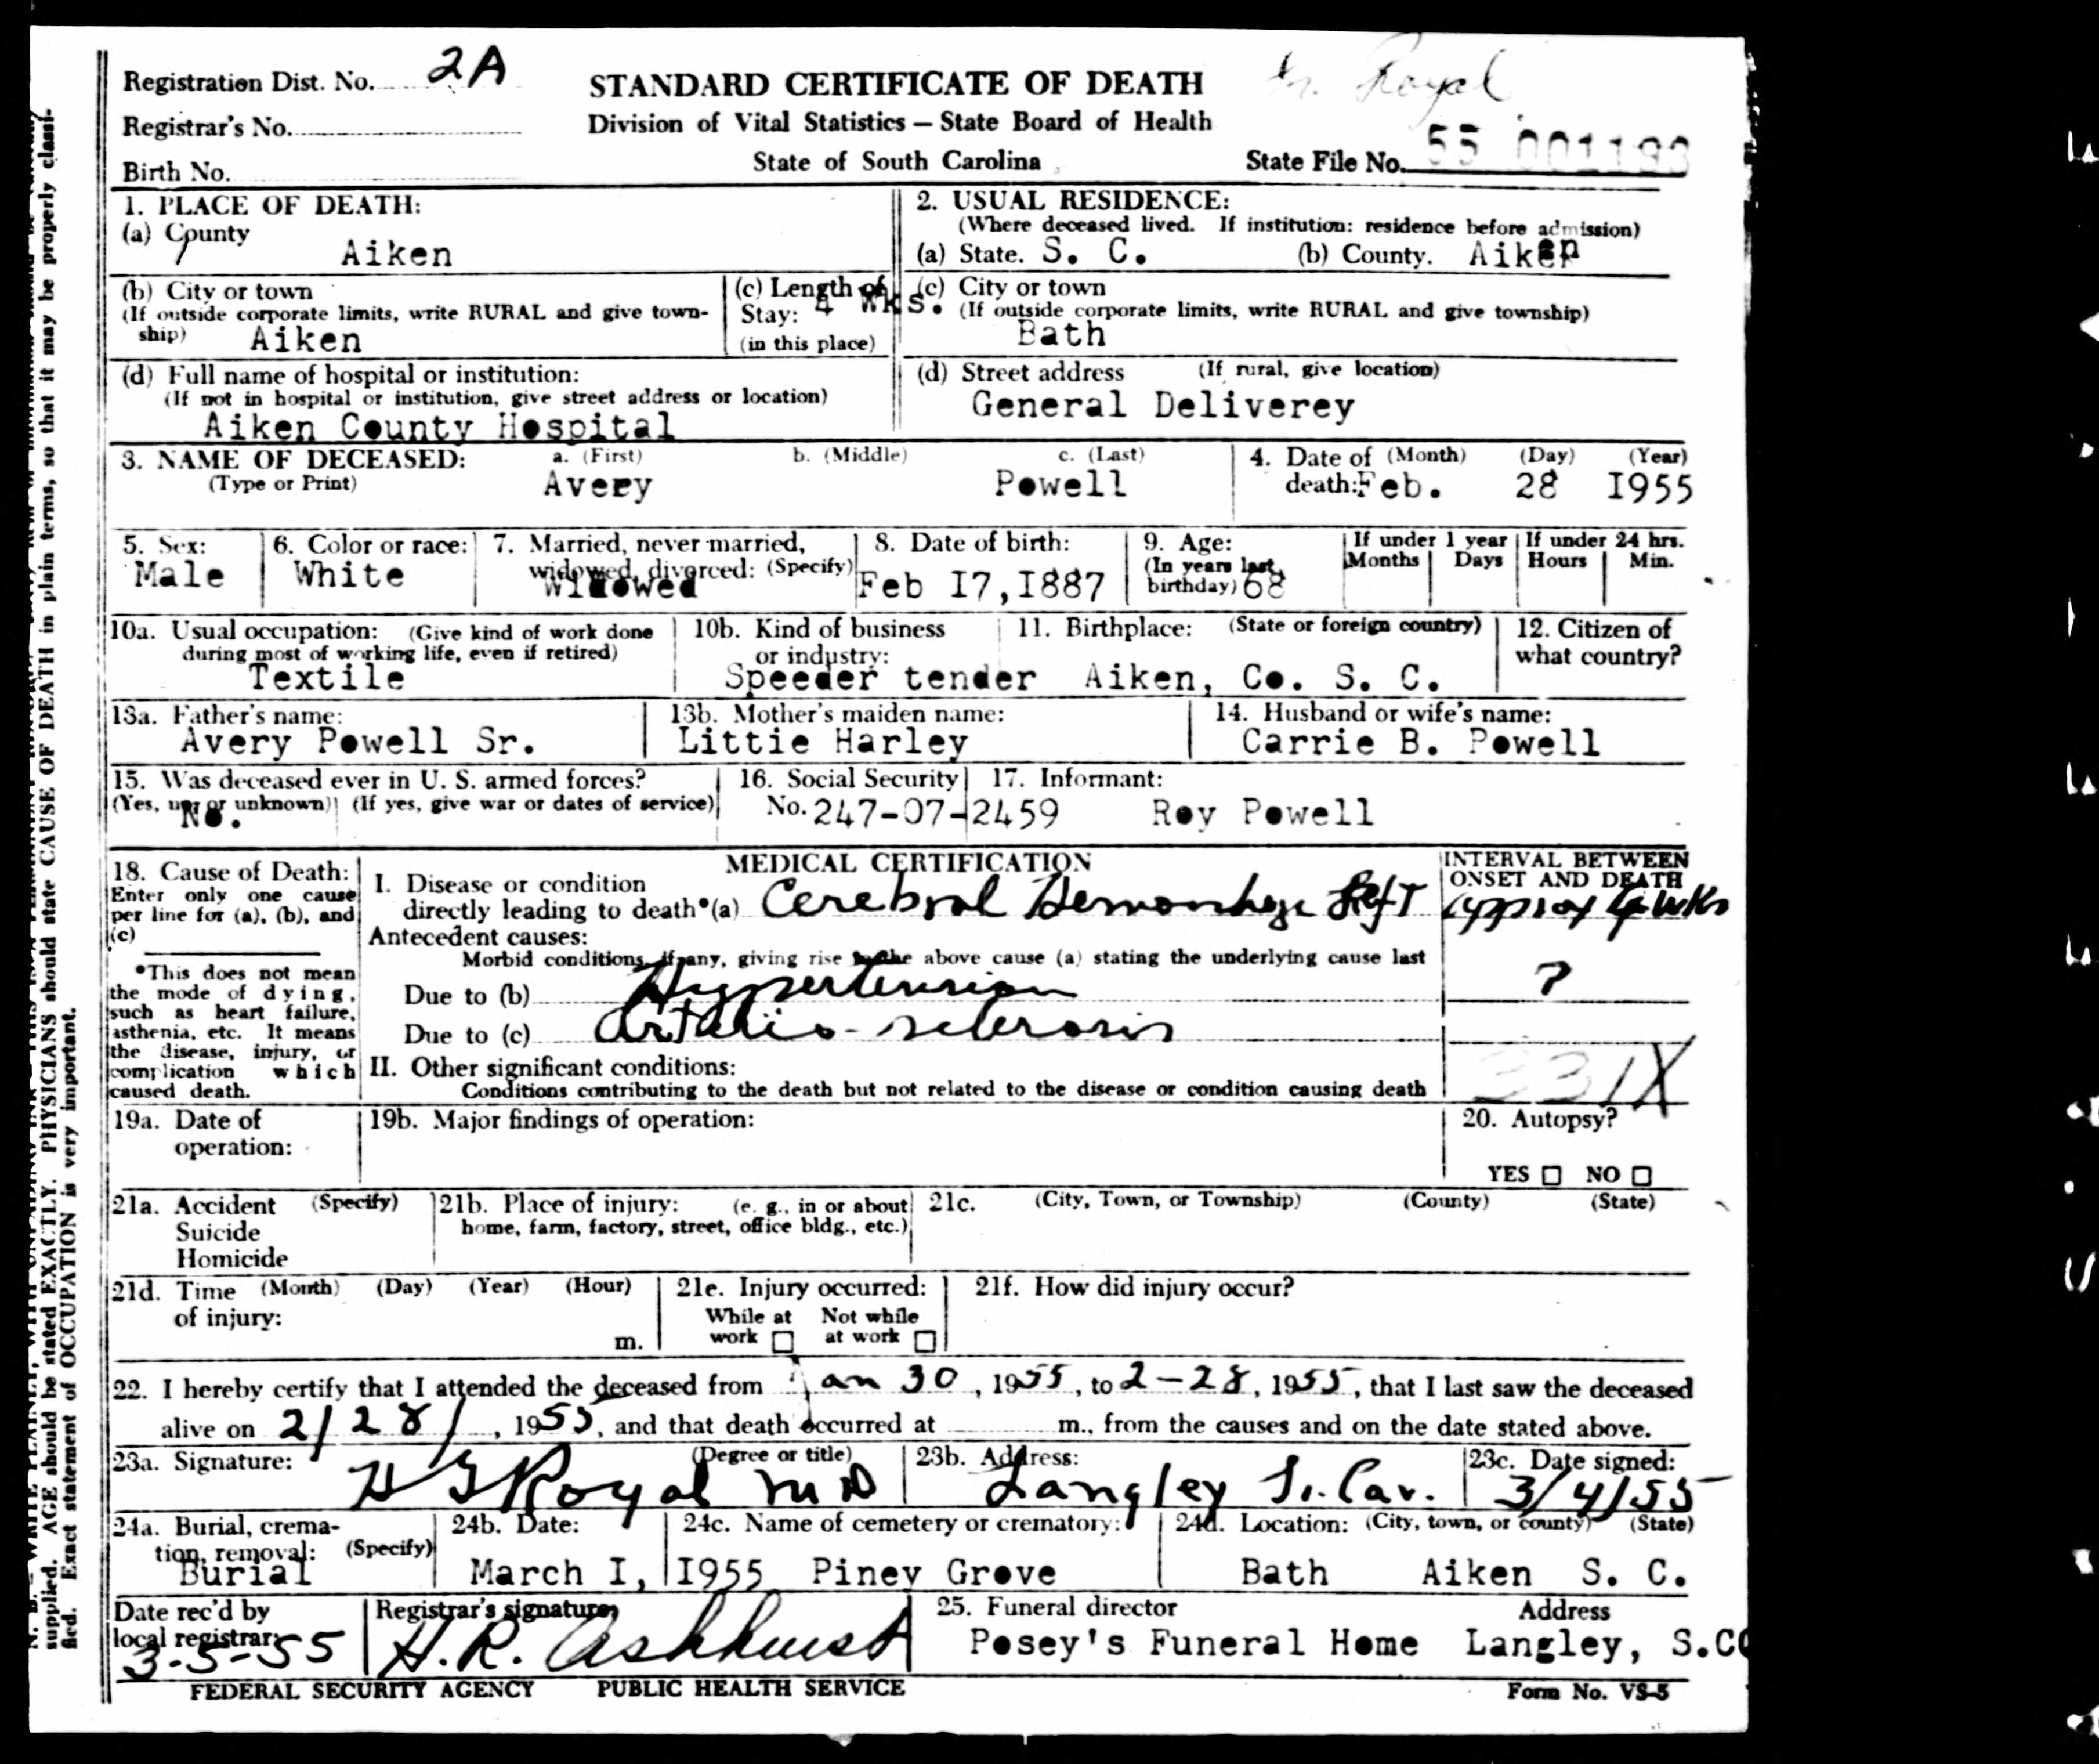 Registration Dist. No. 2A
STANDARD CERTIFICATE OF DEATH
Royal
Registrar's No.
Division of Vital Statistics — State Board of Health
Birth No.
State of South Carolina
State File No. 55 001193
1. PLACE OF DEATH:
(a) County
Aiken
2. USUAL RESIDENCE:
(Where deceased lived. If institution: residence before admission)
(a) State. S. C. (b) County. Aiken
(b) City or town
(If outside corporate limits, write RURAL and give town-
ship) Aiken
(c) Length of
Stay: 4 wks.
(in this place)
(c) City or town
(If outside corporate limits, write RURAL and give township)
Bath
(d) Full name of hospital or institution:
(If not in hospital or institution, give street address or location)
Aiken County Hospital
(d) Street address (If rural, give location)
General Deliverey
3. NAME OF DECEASED: a. (First) b. (Middle) c. (Last)
(Type or Print) Avery Powell
4. Date of (Month) (Day) (Year)
death: Feb. 28 I955
5. Sex:
Male
6. Color or race:
White
7. Married, never married,
widowed, divorced: (Specify)
Widowed
8. Date of birth:
Feb I7,I887
9. Age:
(In years last
birthday) 68
If under 1 year
Months Days
If under 24 hrs.
Hours Min.
10a. Usual occupation: (Give kind of work done
during most of working life, even if retired)
Textile
10b. Kind of business
or industry:
Speeder tender
11. Birthplace: (State or foreign country)
Aiken, Co. S. C.
12. Citizen of
what country?
13a. Father's name:
Avery Powell Sr.
13b. Mother's maiden name:
Littie Harley
14. Husband or wife's name:
Carrie B. Powell
15. Was deceased ever in U. S. armed forces?
(Yes, no, or unknown) (If yes, give war or dates of service)
No.
16. Social Security
No. 247-07-2459
17. Informant:
Roy Powell
18. Cause of Death:
Enter only one cause
per line for (a), (b), and
(c)
*This does not mean
the mode of dying,
such as heart failure,
asthenia, etc. It means
the disease, injury, or
complication which
caused death.
MEDICAL CERTIFICATION
I. Disease or condition
directly leading to death*(a) Cerebral Hemorrhage Left
Antecedent causes:
Morbid conditions, if any, giving rise to the above cause (a) stating the underlying cause last
Due to (b) Hypertension
Due to (c) Arterio-sclerosis
II. Other significant conditions:
Conditions contributing to the death but not related to the disease or condition causing death
INTERVAL BETWEEN
ONSET AND DEATH
approx 4 wks
?
331X
19a. Date of
operation:
19b. Major findings of operation:
20. Autopsy?
YES NO
21a. Accident (Specify)
Suicide
Homicide
21b. Place of injury: (e. g., in or about
home, farm, factory, street, office bldg., etc.)
21c. (City, Town, or Township) (County) (State)
21d. Time (Month) (Day) (Year) (Hour)
of injury:
m.
21e. Injury occurred:
While at Not while
work at work
21f. How did injury occur?
22. I hereby certify that I attended the deceased from Jan 30, 1955, to 2-28, 1955, that I last saw the deceased
alive on 2/28/, 1955, and that death occurred at m., from the causes and on the date stated above.
23a. Signature: (Degree or title)
Royal MD
23b. Address:
Langley So. Car.
23c. Date signed:
3/4/55
24a. Burial, crema-
tion, removal: (Specify)
Burial
24b. Date:
March I, I955
24c. Name of cemetery or crematory:
Piney Grove
24d. Location: (City, town, or county) (State)
Bath Aiken S. C.
Date rec'd by
local registrar:
3-5-55
Registrar's signature
H.R. Ashhurst
25. Funeral director Address
Posey's Funeral Home Langley, S.C
FEDERAL SECURITY AGENCY PUBLIC HEALTH SERVICE
Form No. VS-5
supplied. AGE should be stated EXACTLY. PHYSICIANS should state CAUSE OF DEATH in plain terms, so that it may be properly classi-
fied. Exact statement of OCCUPATION is very important.